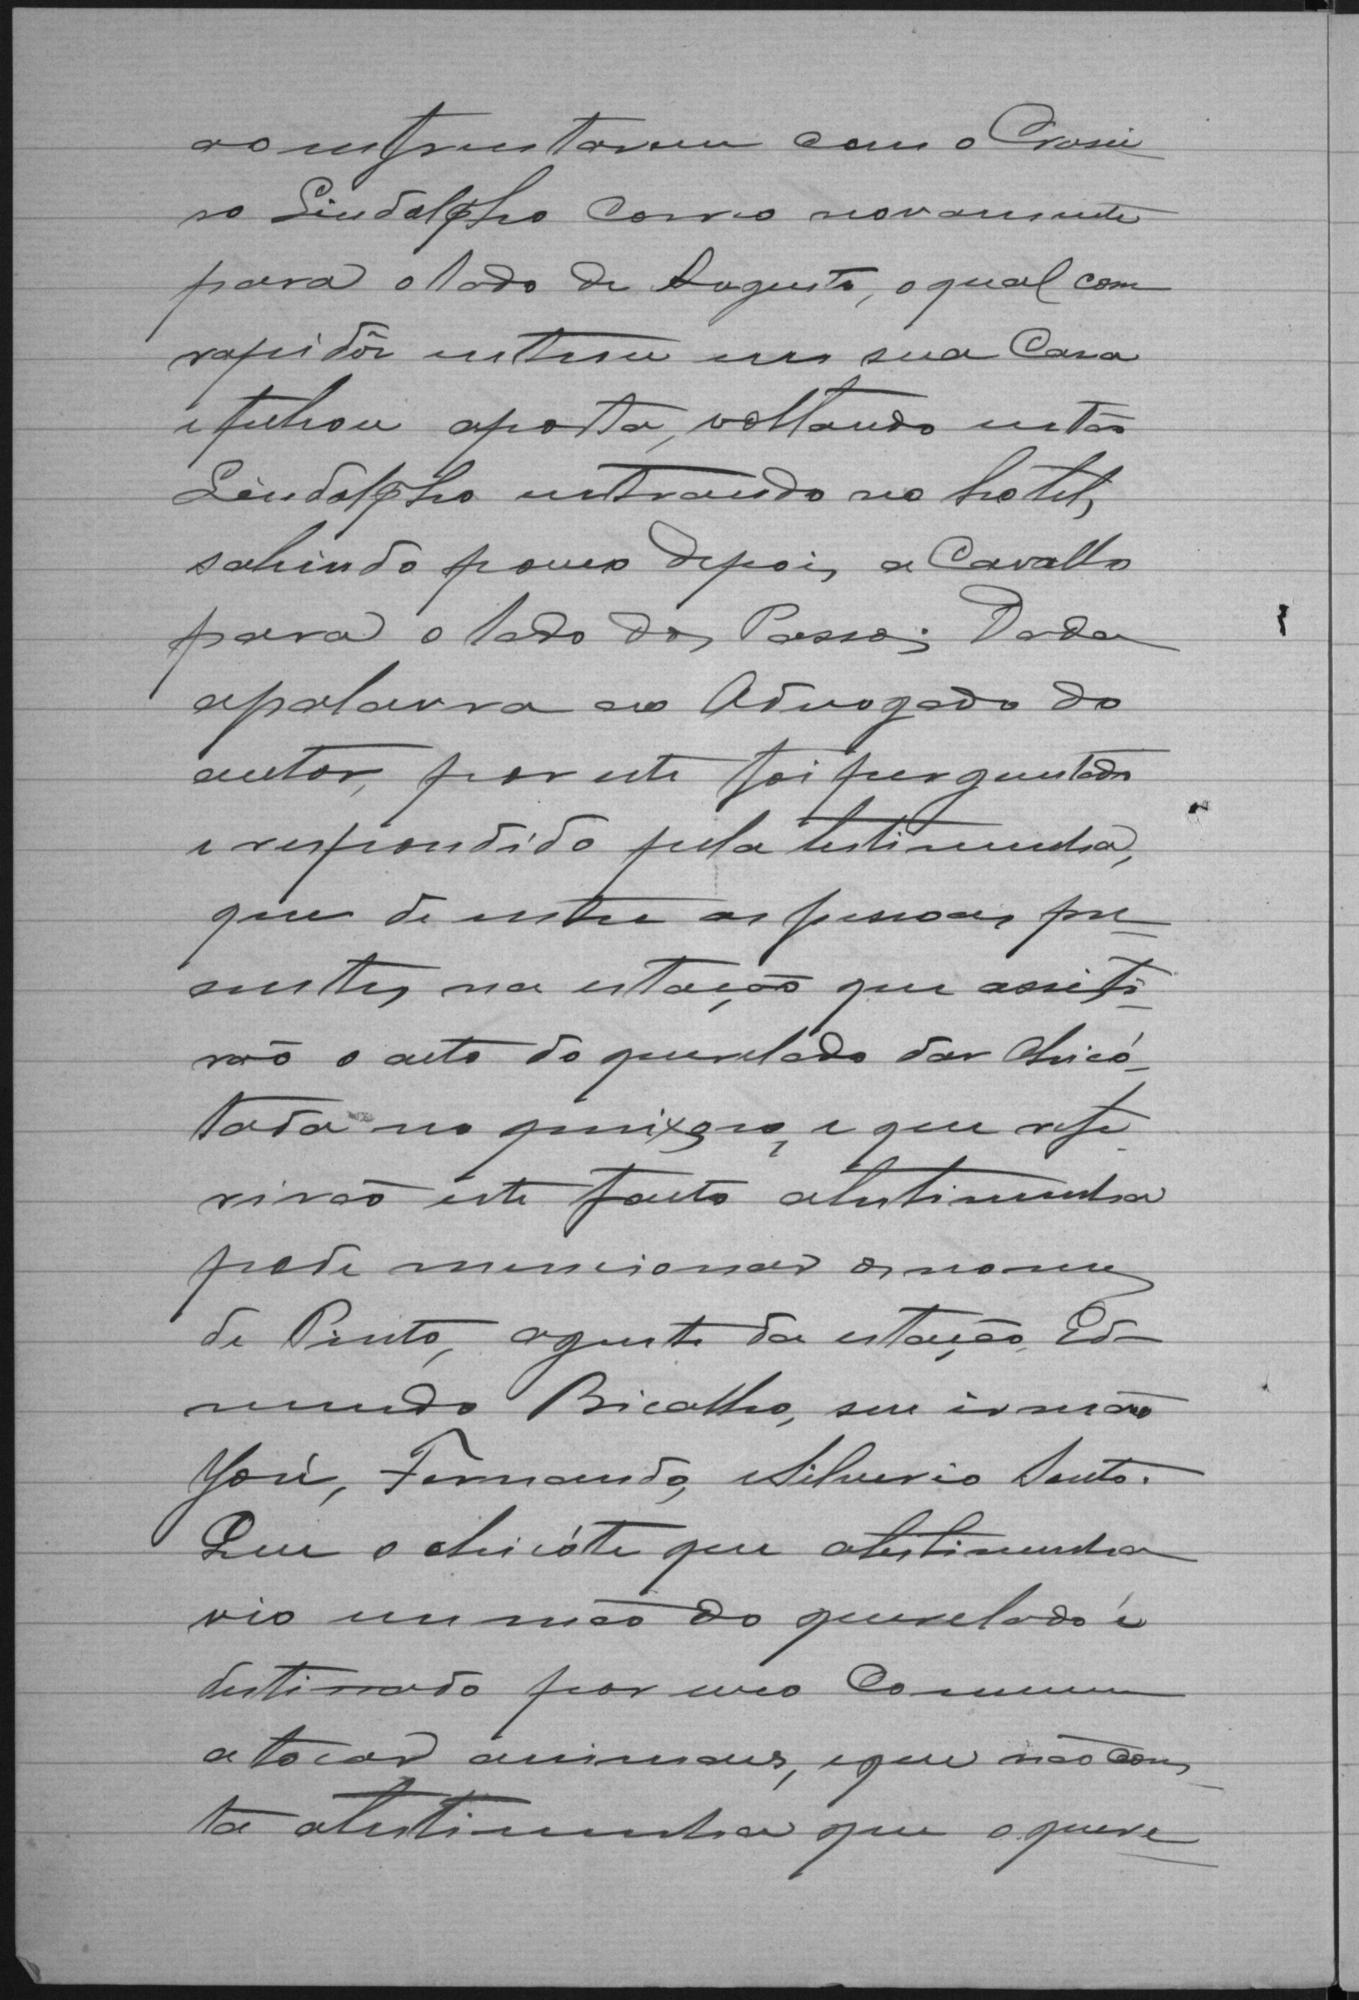 ao enfrentarem com o Crosei
ro Lindolpho correo novamente
para o lado de Augusto, o qual com
rapidôr entrou em sua Casa
e fechou aporta, voltando então
Lindolpho entrando no hotel,
sahindo pouco depois a Cavallo
para o lado dos Passos; Dada
apalavra ao Advogado do
autor, por este foi perguntado
e respondido pela testimunha,
que de entre as pessoas pre
sentes na estação que assisti
rão o acto do querelado dar chicó
tada no queixoso, e que refe
rirão este facto atestimunha
pode mencionar os nomes
de Pinto, agente da estação, Ed
mundo Bicalho, seu irmão
José, Fernando, e Silverio Souto.
Que o chicóte que atestimunha
vio em mão do querelado é
destinado por uso Commum
a tocar animaes, e que não cons
ta atestimunha que o quere